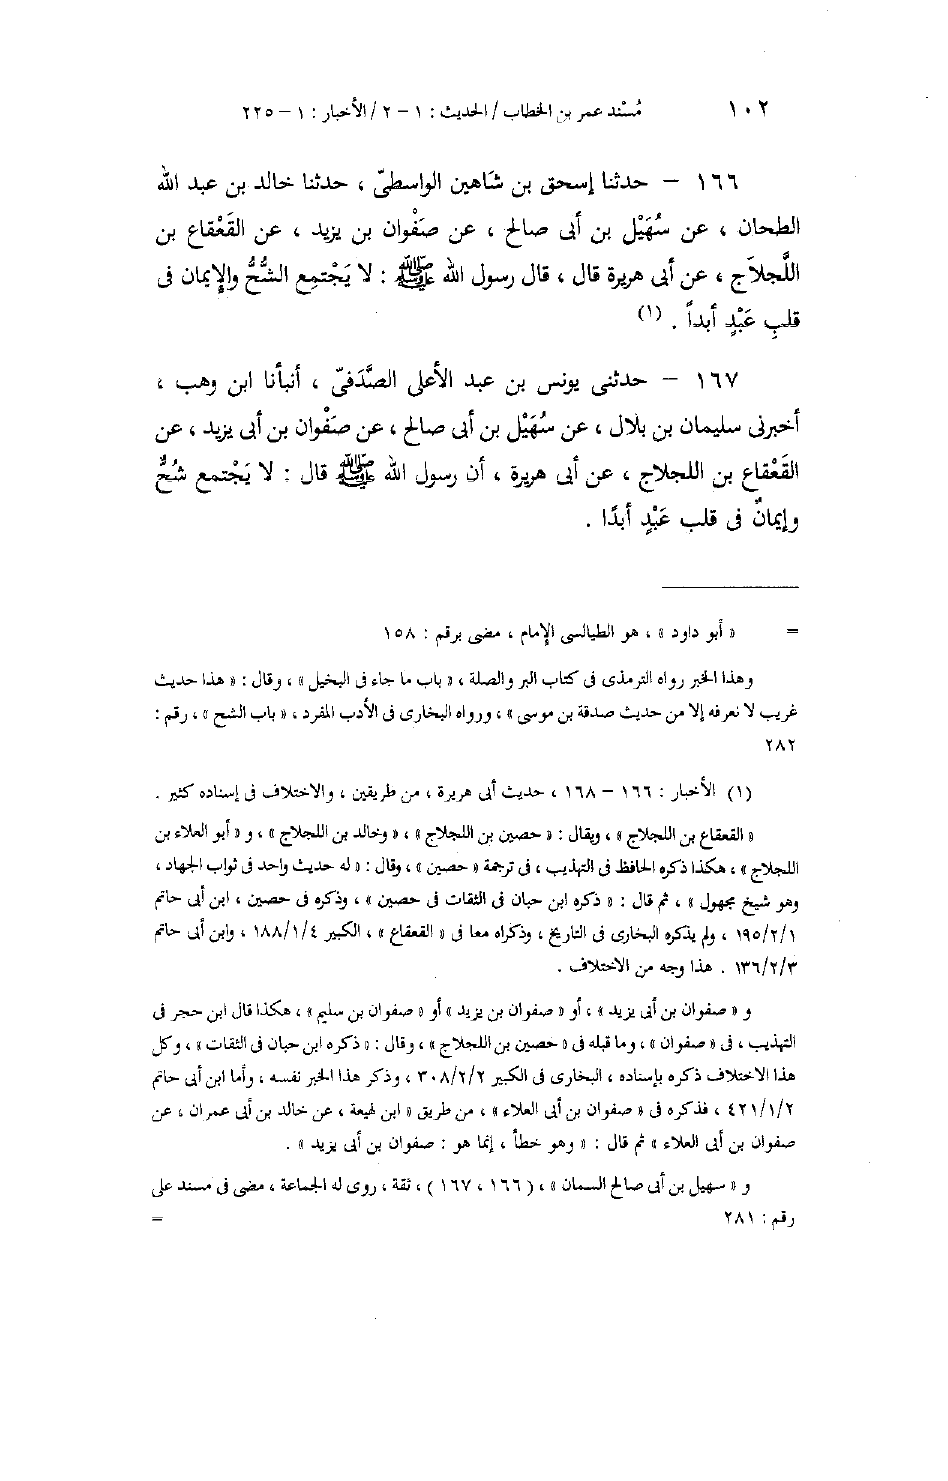 ١٠٢ مُسْند عمر بن الخطاب / الحديث : ١ – ٢ / الأخبار : ١ – ٢٢٥
١٦٦ – حدثنا إسحق بن شاهين الواسطىّ ، حدثنا خالد بن عبد الله
الطحان ، عن سُهَيْل بن أبى صالح ، عن صَفْوان بن يزيد ، عن القَعْقاع بن
اللَّجلاَج ، عن أبى هريرة قال ، قال رسول الله ﷺ : لا يَجْتمِع الشُّحُّ والإِيمان فى
قلبِ عَبْدٍ أبداً . (١)
١٦٧ – حدثنى يونس بن عبد الأعلى الصَّدَفىّ ، أنبأنا ابن وهب ،
أخبرنى سليمان بن بلال ، عن سُهَيْل بن أبى صالح ، عن صَفْوان بن أبى يزيد ، عن
القَعْقاع بن اللجلاج ، عن أبى هريرة ، أن رسول الله ﷺ قال : لا يَجْتمع شُحٌّ
وإيمانٌ فى قلب عَبْدٍ أبدًا .
= « أبو داود » ، هو الطيالسى الإمام ، مضى برقم : ١٥٨
وهذا الخبر رواه الترمذى فى كتاب البر والصلة ، « باب ما جاء فى البخيل » ، وقال : « هذا حديث
غريب لا نعرفه إلا من حديث صدقة بن موسى » ، ورواه البخارى فى الأدب المفرد ، « باب الشح » ، رقم :
٢٨٢
(١) الأخبار : ١٦٦ – ١٦٨ ، حديث أبى هريرة ، من طريقين ، والاختلاف فى إسناده كثير .
« القعقاع بن اللجلاج » ، ويقال : « حصين بن اللجلاج » ، « وخالد بن اللجلاج » ، و « أبو العلاء بن
اللجلاج » ، هكذا ذكره الحافظ فى التهذيب ، فى ترجمة « حصين » ، وقال : « له حديث واحد فى ثواب الجهاد ،
وهو شيخ مجهول » ، ثم قال : « ذكره ابن حبان فى الثقات فى حصين » ، وذكره فى حصين ، ابن أبى حاتم
١٩٥/٢/١ ، ولم يذكره البخارى فى التاريخ ، وذكراه معا فى « القعقاع » ، الكبير ١٨٨/١/٤ ، وابن أبى حاتم
١٣٦/٢/٣ . هذا وجه من الاختلاف .
و « صفوان بن أبى يزيد » ، أو « صفوان بن يزيد » أو « صفوان بن سليم » ، هكذا قال ابن حجر فى
التهذيب ، فى « صفوان » ، وما قبله فى « حصين بن اللجلاج » ، وقال : « ذكره ابن حبان فى الثقات » ، وكل
هذا الاختلاف ذكره بإسناده ، البخارى فى الكبير ٣٠٨/٢/٢ ، وذكر هذا الخبر نفسه ، وأما ابن أبى حاتم
٤٢١/١/٢ ، فذكره فى « صفوان بن أبى العلاء » ، من طريق « ابن لهيعة ، عن خالد بن أبى عمران ، عن
صفوان بن أبى العلاء » ثم قال : « وهو خطأ ، إنما هو : صفوان بن أبى يزيد » .
و « سهيل بن أبى صالح السمان » ، ( ١٦٦ ، ١٦٧ ) ، ثقة ، روى له الجماعة ، مضى فى مسند على
رقم : ٢٨١ =